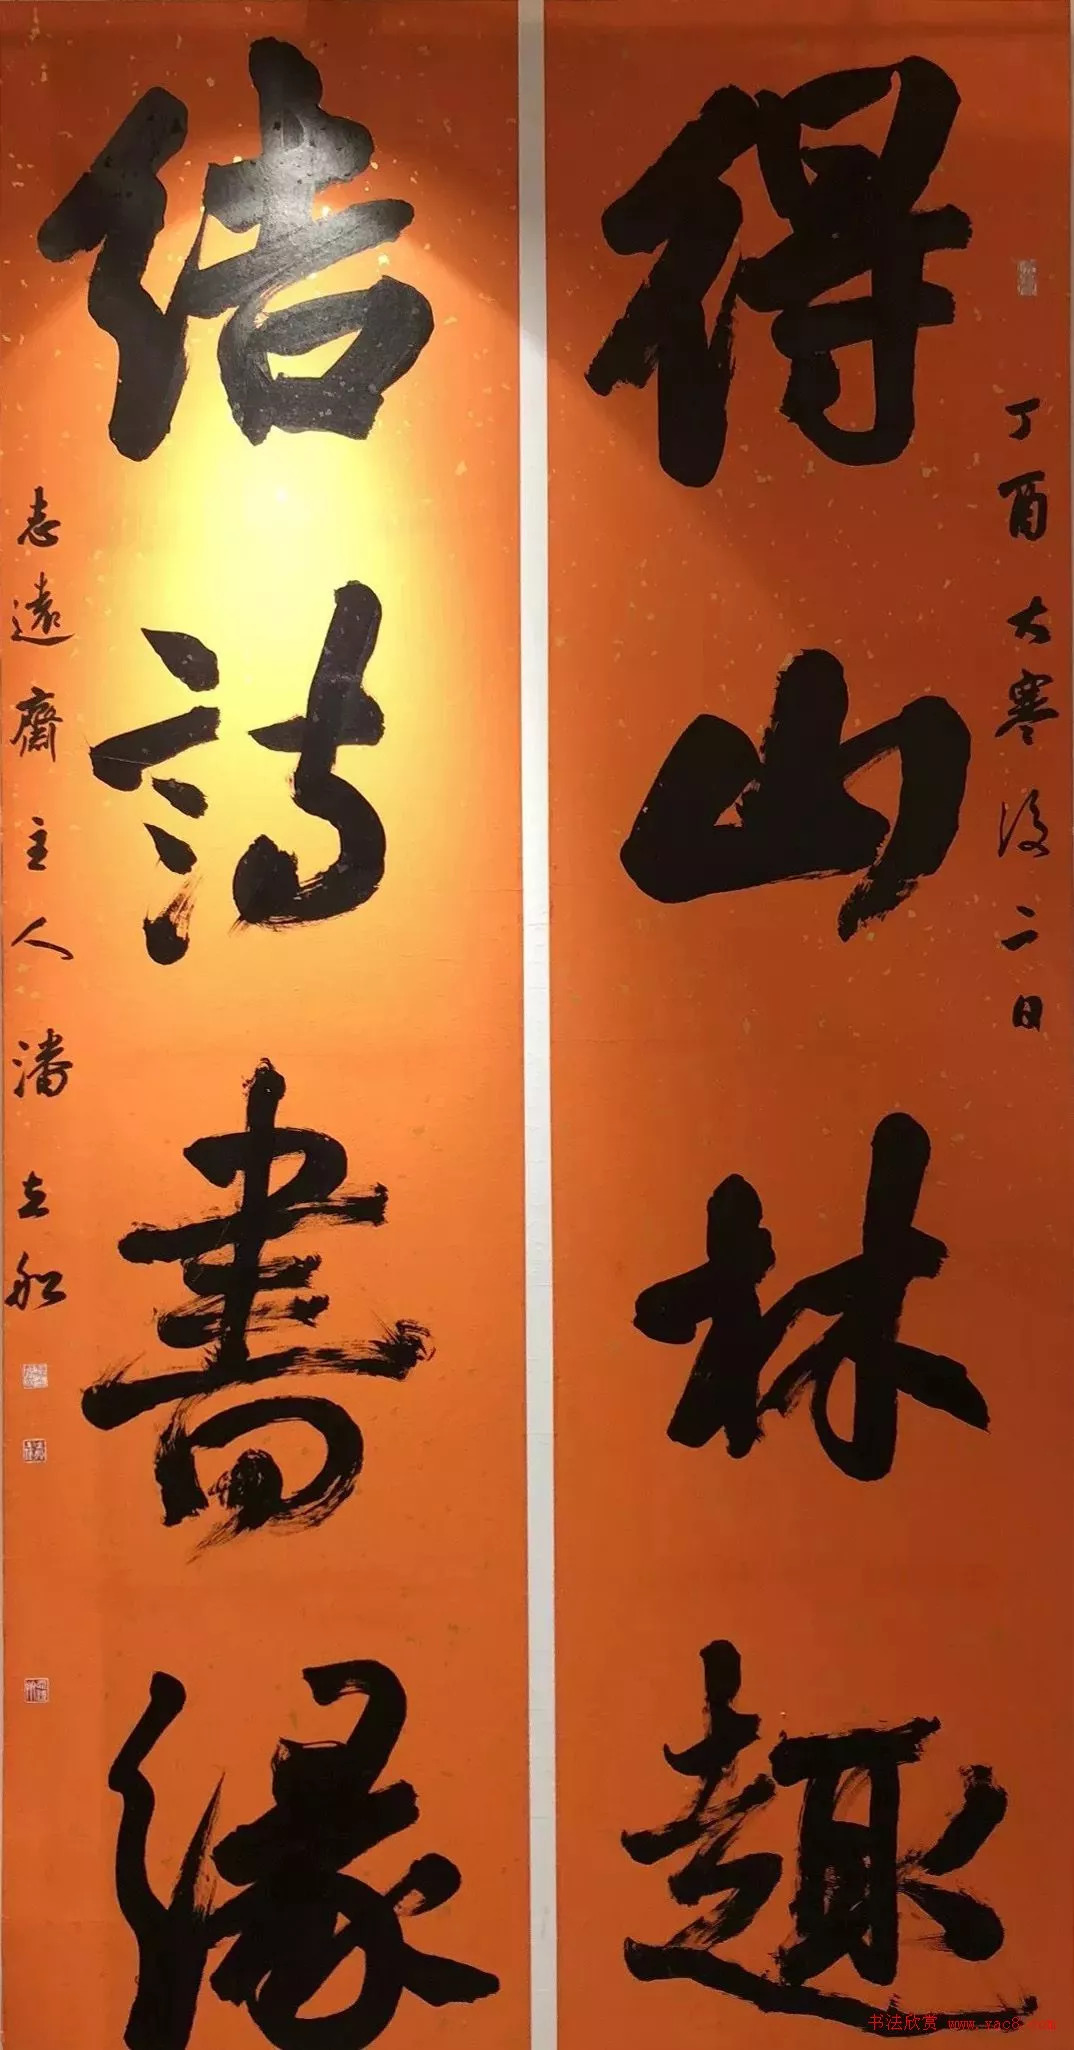 得山林趣
丁酉大寒後二日
结诗書缘
志遠齋主人潘立舩
书法欣赏 www.yac8.com